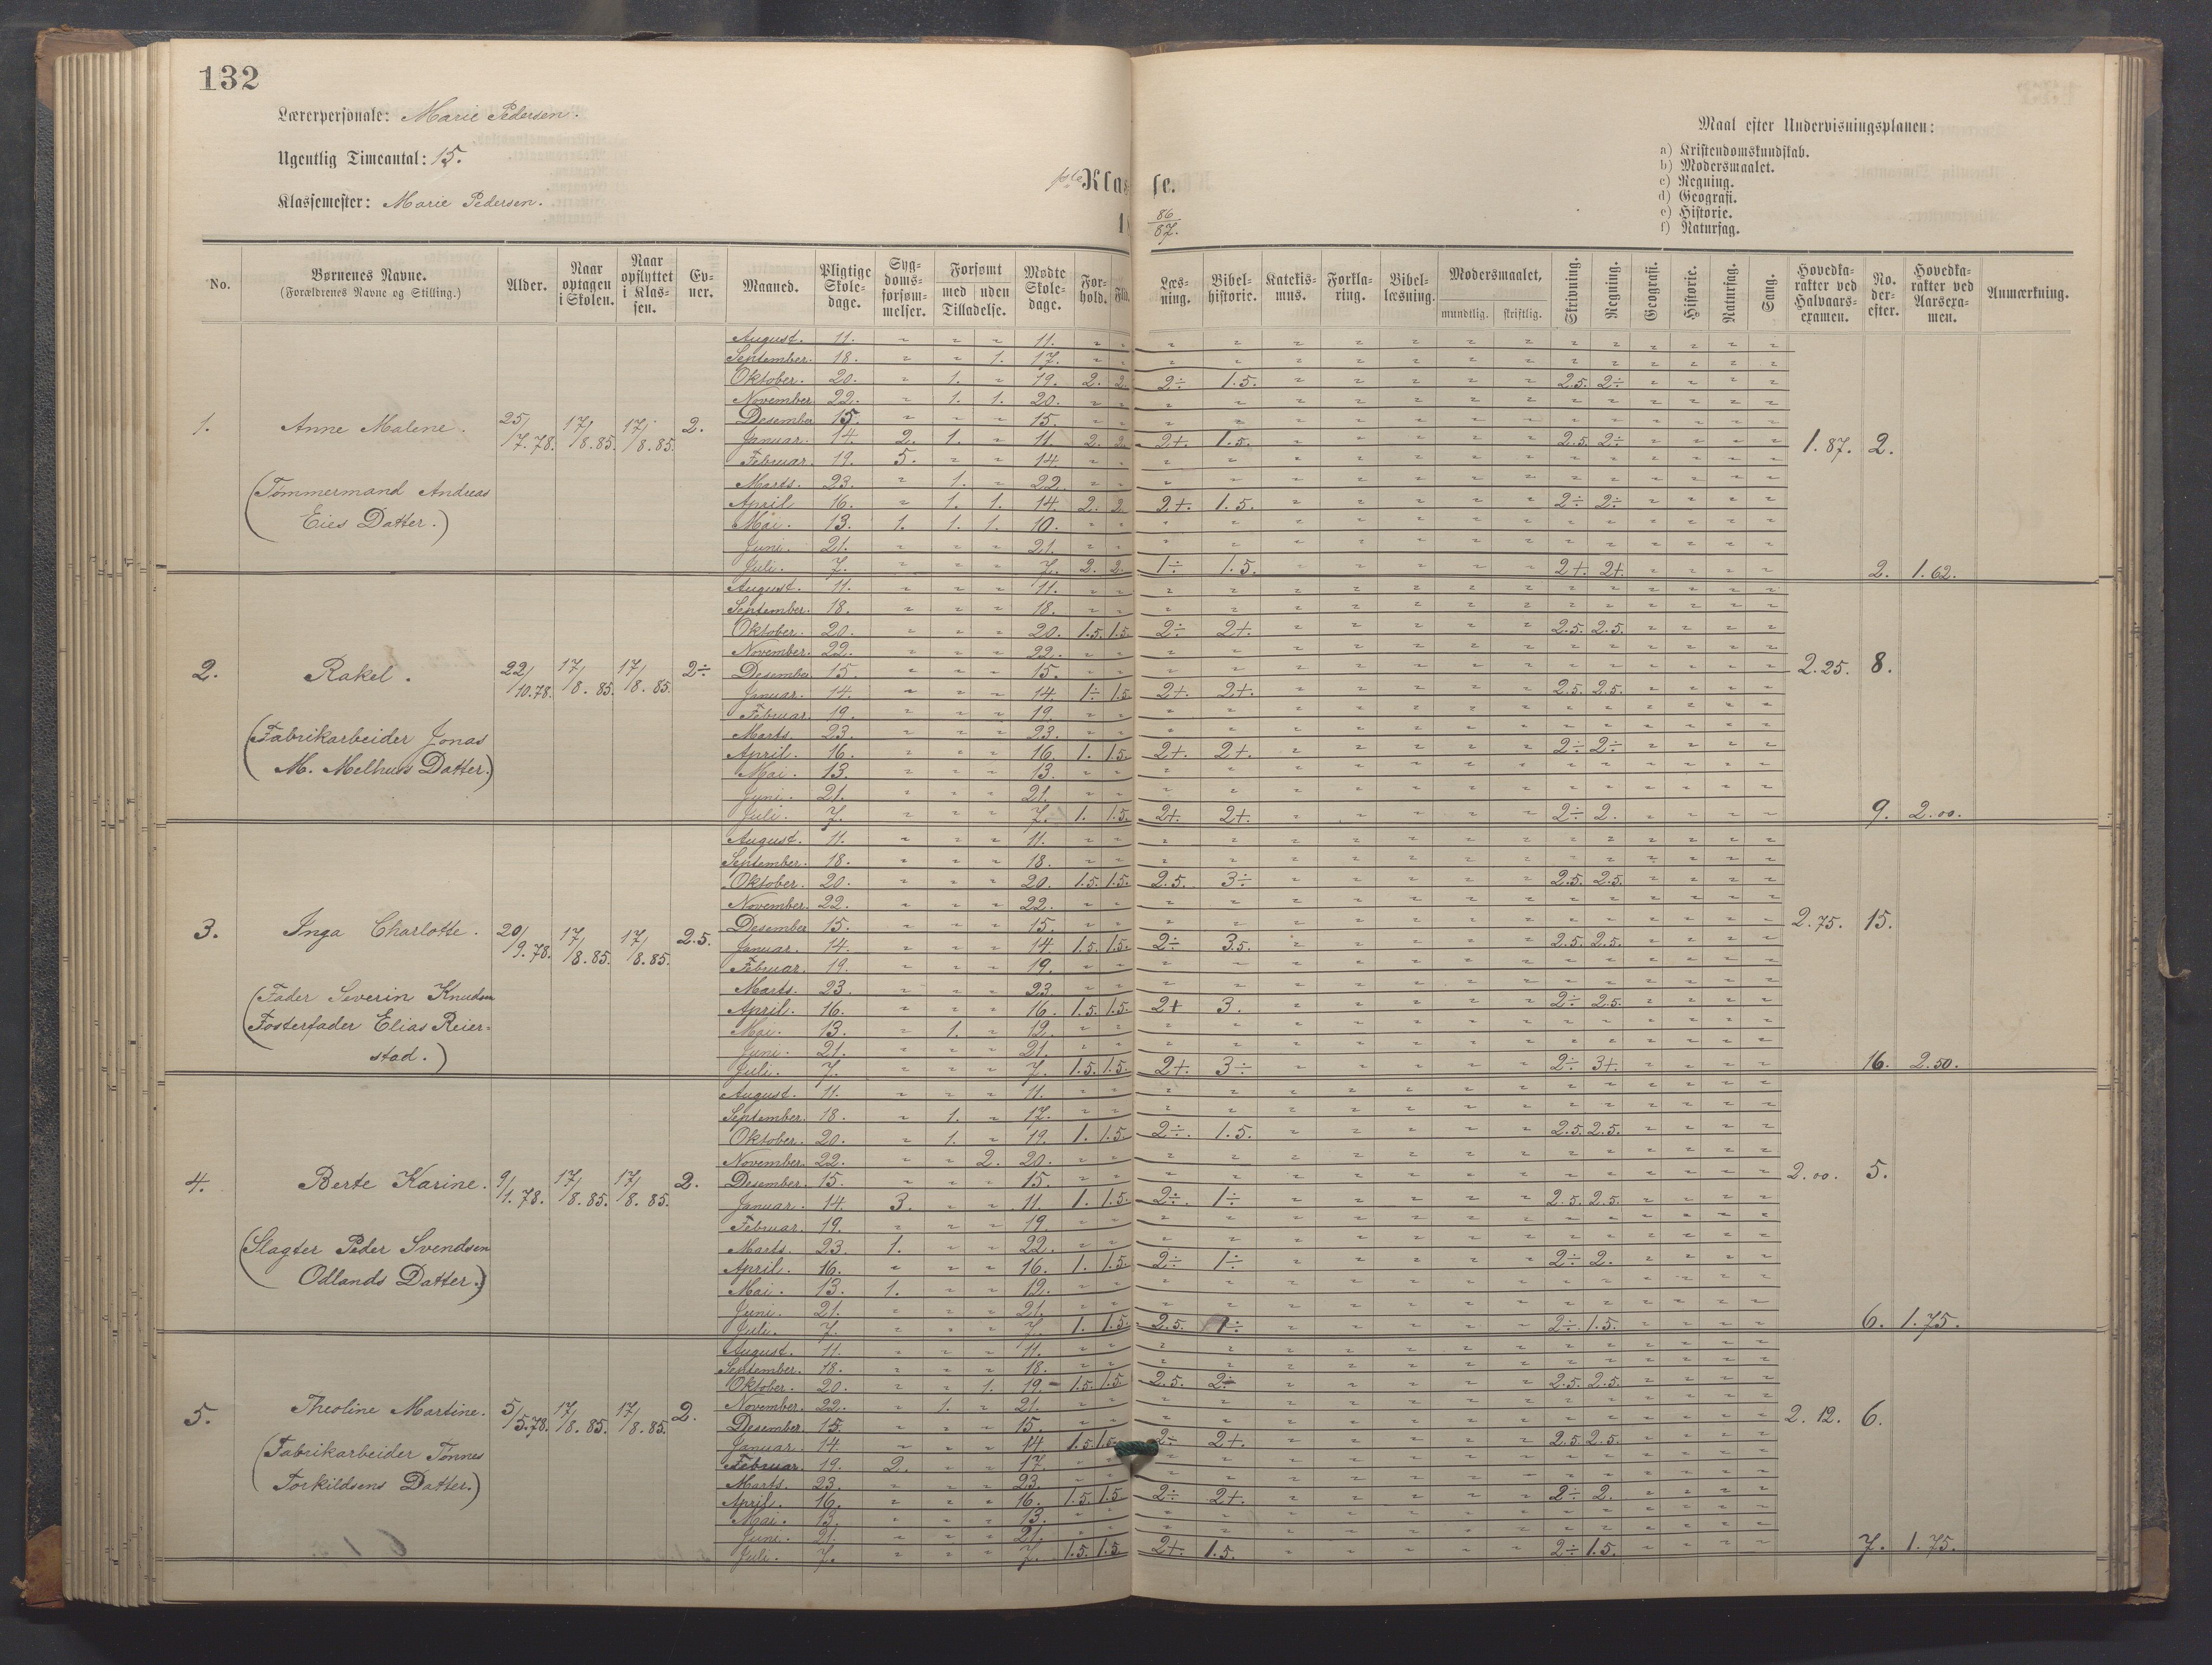 132
Lærerpersonale: Marie Pedersen.
Ugentlig Timeantal: 15.
Klassemester: Marie Pedersen.
1ste Klasse.
18 86/87.
Maal efter Undervisningsplanen:
a) Kristendomskundskab.
b) Modersmaalet.
c) Regning.
d) Geografi.
e) Historie.
f) Naturfag.
No. Børnenes Navne. (Forældrenes Navne og Stilling.) Alder. Naar optagen i Skolen. Naar opflyttet i Klassen. Evner. Maaned. Pligtige Skoledage. Sygdomsforsømmelser. Forsømt med uden Tilladelse. Mødte Skoledage. Forhold. Flid. Læsning. Bibelhistorie. Katekismus. Forklaring. Bibellæsning. Modersmaalet, mundtlig. skriftlig. Skrivning. Regning. Geografi. Historie. Naturfag. Sang. Hovedkarakter ved Halvaarsexamen. No. derefter. Hovedkarakter ved Aarsexamen. Anmærkning.
1. Anne Malene. 25/7.78. 17/8.85. 17/8.85. 2. 1.87. 2.
(Tømmermand Andreas
Eies Datter.)
August. 11. " " " 11. " " " " " " " " " " " " " " "
September. 18. " " 1. 17. " " " " " " " " " " " " " " "
Oktober. 20. " 1. " 19. 2. 2. 2÷ 1.5. " " " " " 2.5. 2÷ " " " "
November 22. " 1. 1. 20. " " " " " " " " " " " " " " "
Desember 15. " " " 15. " " " " " " " " " " " " " " "
Januar. 14. 2. 1. " 11. 2. 2. 2+. 1.5. " " " " " 2.5. 2÷ " " " "
Februar. 19. 5. " " 14. " " " " " " " " " " " " " " "
Marts. 23. " 1. " 22. " " " " " " " " " " " " " " "
April 16. " 1. 1. 14. 2. 2. 2+. 1.5. " " " " " 2÷ 2÷ " " " "
Mai. 13. 1. 1. 1. 10. " " " " " " " " " " " " " " "
Juni. 21. " " " 21. " " " " " " " " " " " " " " "
Juli. 7. " " " 7. 2. 2. 1÷ 1.5. " " " " " 2+. 2+. " " " " 2. 1.62.
2. Rakel. 22/10.78. 17/8.85. 17/8.85. 2÷ 2.25. 8.
(Fabrikarbeider Jonas
M. Melhus Datter.)
August. 11. " " " 11. " " " " " " " " " " " " " " "
September. 18. " " " 18. " " " " " " " " " " " " " " "
Oktober. 20. " " " 20. 1.5. 1.5. 2÷ 2+. " " " " " 2.5. 2.5. " " " "
November. 22. " " " 22. " " " " " " " " " " " " " " "
Desember 15. " " " 15. " " " " " " " " " " " " " " "
Januar. 14. " " " 14. 1÷ 1.5. 2+. 2+. " " " " " 2.5. 2.5. " " " "
Februar. 19. " " " 19. " " " " " " " " " " " " " " "
Marts. 23. " " " 23. " " " " " " " " " " " " " " "
April. 16. " " " 16. 1. 1.5. 2+. 2+. " " " " " 2÷ 2÷ " " " "
Mai. 13. " " " 13. " " " " " " " " " " " " " " "
Juni. 21. " " " 21. " " " " " " " " " " " " " " "
Juli. 7. " " " 7. 1. 1.5. 2+. 2+. " " " " " 2÷ 2. " " " " 9. 2.00.
3. Inga Charlotte. 20/9.78. 17/8.85. 17/8.85. 2.5. 2.75. 15.
(Fader Severin Knudsen
Fosterfader Elias Reier=
stad.)
August. 11. " " " 11. " " " " " " " " " " " " " " "
September. 18. " " " 18. " " " " " " " " " " " " " " "
Oktober. 20. " " " 20. 1.5. 1.5. 2.5. 3÷ " " " " " 2.5. 2.5. " " " "
November. 22. " " " 22. " " " " " " " " " " " " " " "
Desember 15. " " " 15. " " " " " " " " " " " " " " "
Januar. 14. " " " 14. 1.5. 1.5. 2÷ 3.5. " " " " " 2.5. 2.5. " " " "
Februar. 19. " " " 19. " " " " " " " " " " " " " " "
Marts. 23. " " " 23. " " " " " " " " " " " " " " "
April. 16. " " " 16. 1.5. 1.5. 2+ 3. " " " " " 2÷ 2.5. " " " "
Mai. 13. " 1. " 12. " " " " " " " " " " " " " " "
Juni. 21. " " " 21. " " " " " " " " " " " " " " "
Juli. 7. " " " 7. 1.5. 1.5. 2+. 3÷ " " " " " 2÷ 3+. " " " " 16. 2.50.
4. Berte Karine. 9/1.78. 17/8.85. 17/8.85. 2. 2.00. 5.
(Slagter Peder Svendsen
Odlands Datter.)
August. 11. " " " 11. " " " " " " " " " " " " " " "
September. 18. " 1. " 17. " " " " " " " " " " " " " " "
Oktober. 20. " 1. " 19. 1. 1.5. 2÷. 1.5. " " " " " 2.5. 2.5. " " " "
November. 22. " " 2. 20. " " " " " " " " " " " " " " "
Desember. 15. " " " 15. " " " " " " " " " " " " " " "
Januar. 14. 3. " " 11. 1. 1.5. 2÷. 1÷ " " " " " 2.5. 2.5. " " " "
Februar. 19. " " " 19. " " " " " " " " " " " " " " "
Marts. 23. 1. " " 22. " " " " " " " " " " " " " " "
April. 16. " " " 16. 1. 1.5. 2÷ 1÷ " " " " " 2÷ 2. " " " "
Mai. 13. 1. " " 12. " " " " " " " " " " " " " " "
Juni. 21. " " " 21. " " " " " " " " " " " " " " "
Juli. 7. " " " 7. 1. 1.5. 2.5. 1÷ " " " " " 2÷ 1.5. " " " " 6. 1.75.
5. Theoline Martine. 5/5.78. 17/8.85. 17/8.85. 2. 2.12. 6.
(Fabrikarbeider Tønnes
Torkildsens Datter.)
August. 11. " " " 11. " " " " " " " " " " " " " " "
September. 18. " " " 18. " " " " " " " " " " " " " " "
Oktober. 20. " " 1. 19. 1.5. 1.5. 2.5. 2÷ " " " " " 2.5. 2.5. " " " "
November. 22. " 1. " 21. " " " " " " " " " " " " " " "
Desember 15. " " " 15. " " " " " " " " " " " " " " "
Januar. 14. " " " 14 1.5. 1.5. 2÷ 2+. " " " " " 2.5. 2.5. " " " "
Februar. 19. 2. " " 17. " " " " " " " " " " " " " " "
Marts. 23. " " " 23. " " " " " " " " " " " " " " "
April. 16. " " " 16. 1.5. 1.5 2÷ 2+. " " " " " 2÷ 2. " " " "
Mai. 13. " " " 13. " " " " " " " " " " " " " " "
Juni. 21. " " " 21. " " " " " " " " " " " " " " "
Juli. 7. " " " 7. 1.5. 1.5 2+. 1.5. " " " " " 2÷ 1.5. " " " " 7. 1.75.